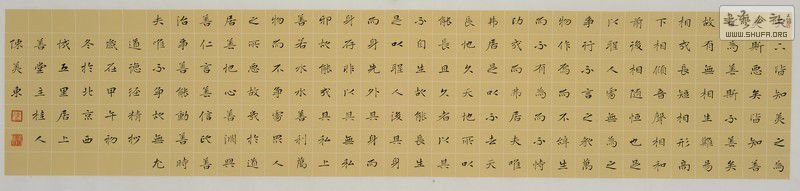 天下皆知美之為
美斯惡矣皆知善
之為善斯不善矣
故有無相生難易
相成長短相形高
下相傾音聲相和
前後相隨恒也是
以聖人處無為之
事行不言之教萬
物作焉而不辭生
而不有為而不恃
功成而弗居夫唯
弗居是以不去天
長地久天地所以
能長且久者以其
不自生故能長生
是以聖人後其身
而身先外其身而
身存非以其無私
邪故能成其私上
善若水水善利萬
物而不爭處眾人
之所惡故幾於道
居善地心善淵與
善仁言善信政善
治事善能動善時
夫唯不爭故無尤
道德經精抄
歲在甲午初
冬於北京西
城五里居上
善堂主桂人
陳英東
WWW.SHUFA.ORG